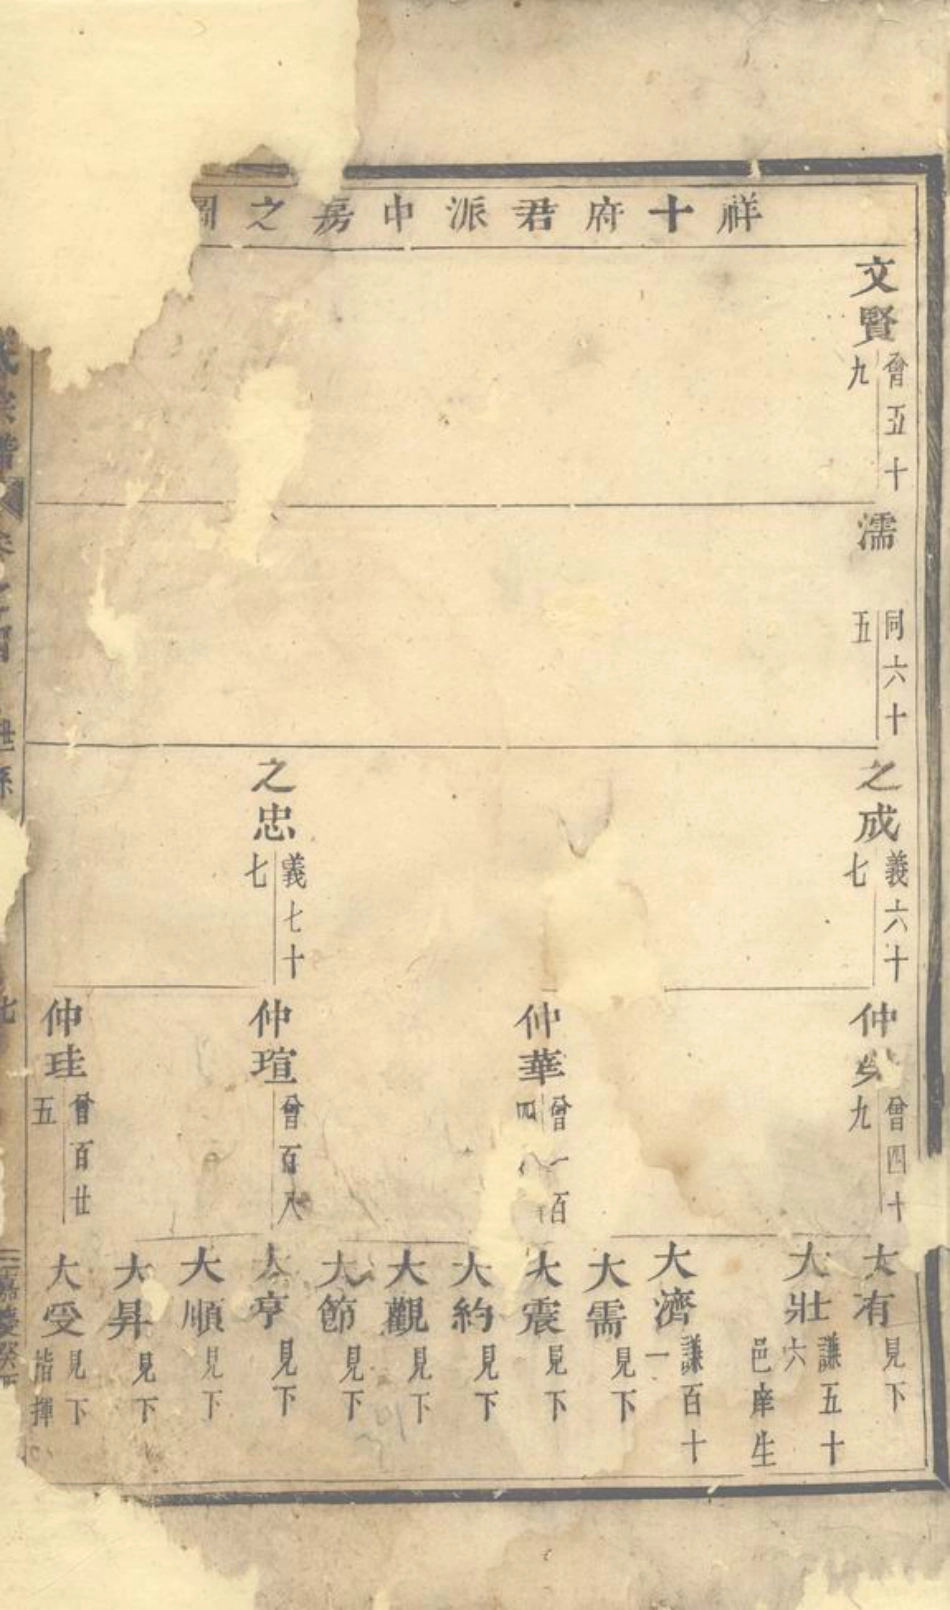 祥十府君派中房之圖
文賢 曾五十九
濡 同六十五
之成 義六十七
之忠 義七十七
仲 曾四十九
仲華 曾一百四
仲瑄 曾百八
仲珪 曾百廿五
大有 見下
大壯 謙五十六 邑庠生
大濟 謙百十一
大需 見下
大震 見下
大約 見下
大觀 見下
大節 見下
大亨 見下
大順 見下
大昇 見下
大受 見下 指揮
宗譜 卷之四 世系 七 嘉慶癸